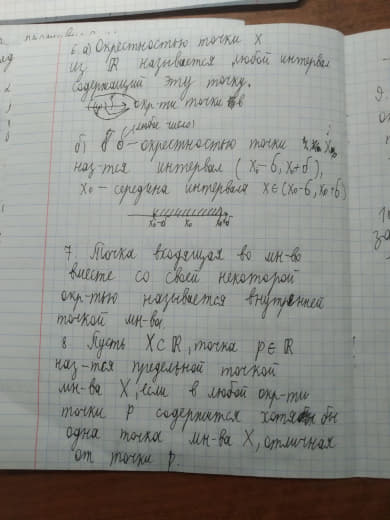 6. а) Окрестностью точки X
из ℝ называется любой интервал
содержащий эту точку.
окр-ти точки в
(любое число)
б) б - окрестностью точки x₀
наз-тся интервал (x₀-б, x₀+б),
x₀ - середина интервала x∈(x₀-б, x₀+б)
x₀-б x₀ x₀+б
7. Точка входящая во мн-во
вместе со своей некоторой
окр-тью называется внутренней
точкой мн-ва.
8. Пусть X⊂ℝ, точка p∈ℝ
наз-тся предельной точкой
мн-ва X, если в любой окр-ти
точки p содержится хотя бы
одна точка мн-ва X, отличная
от точки p.